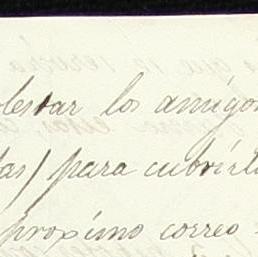 olestar los amigos
das) para cubrirla
proximo correo